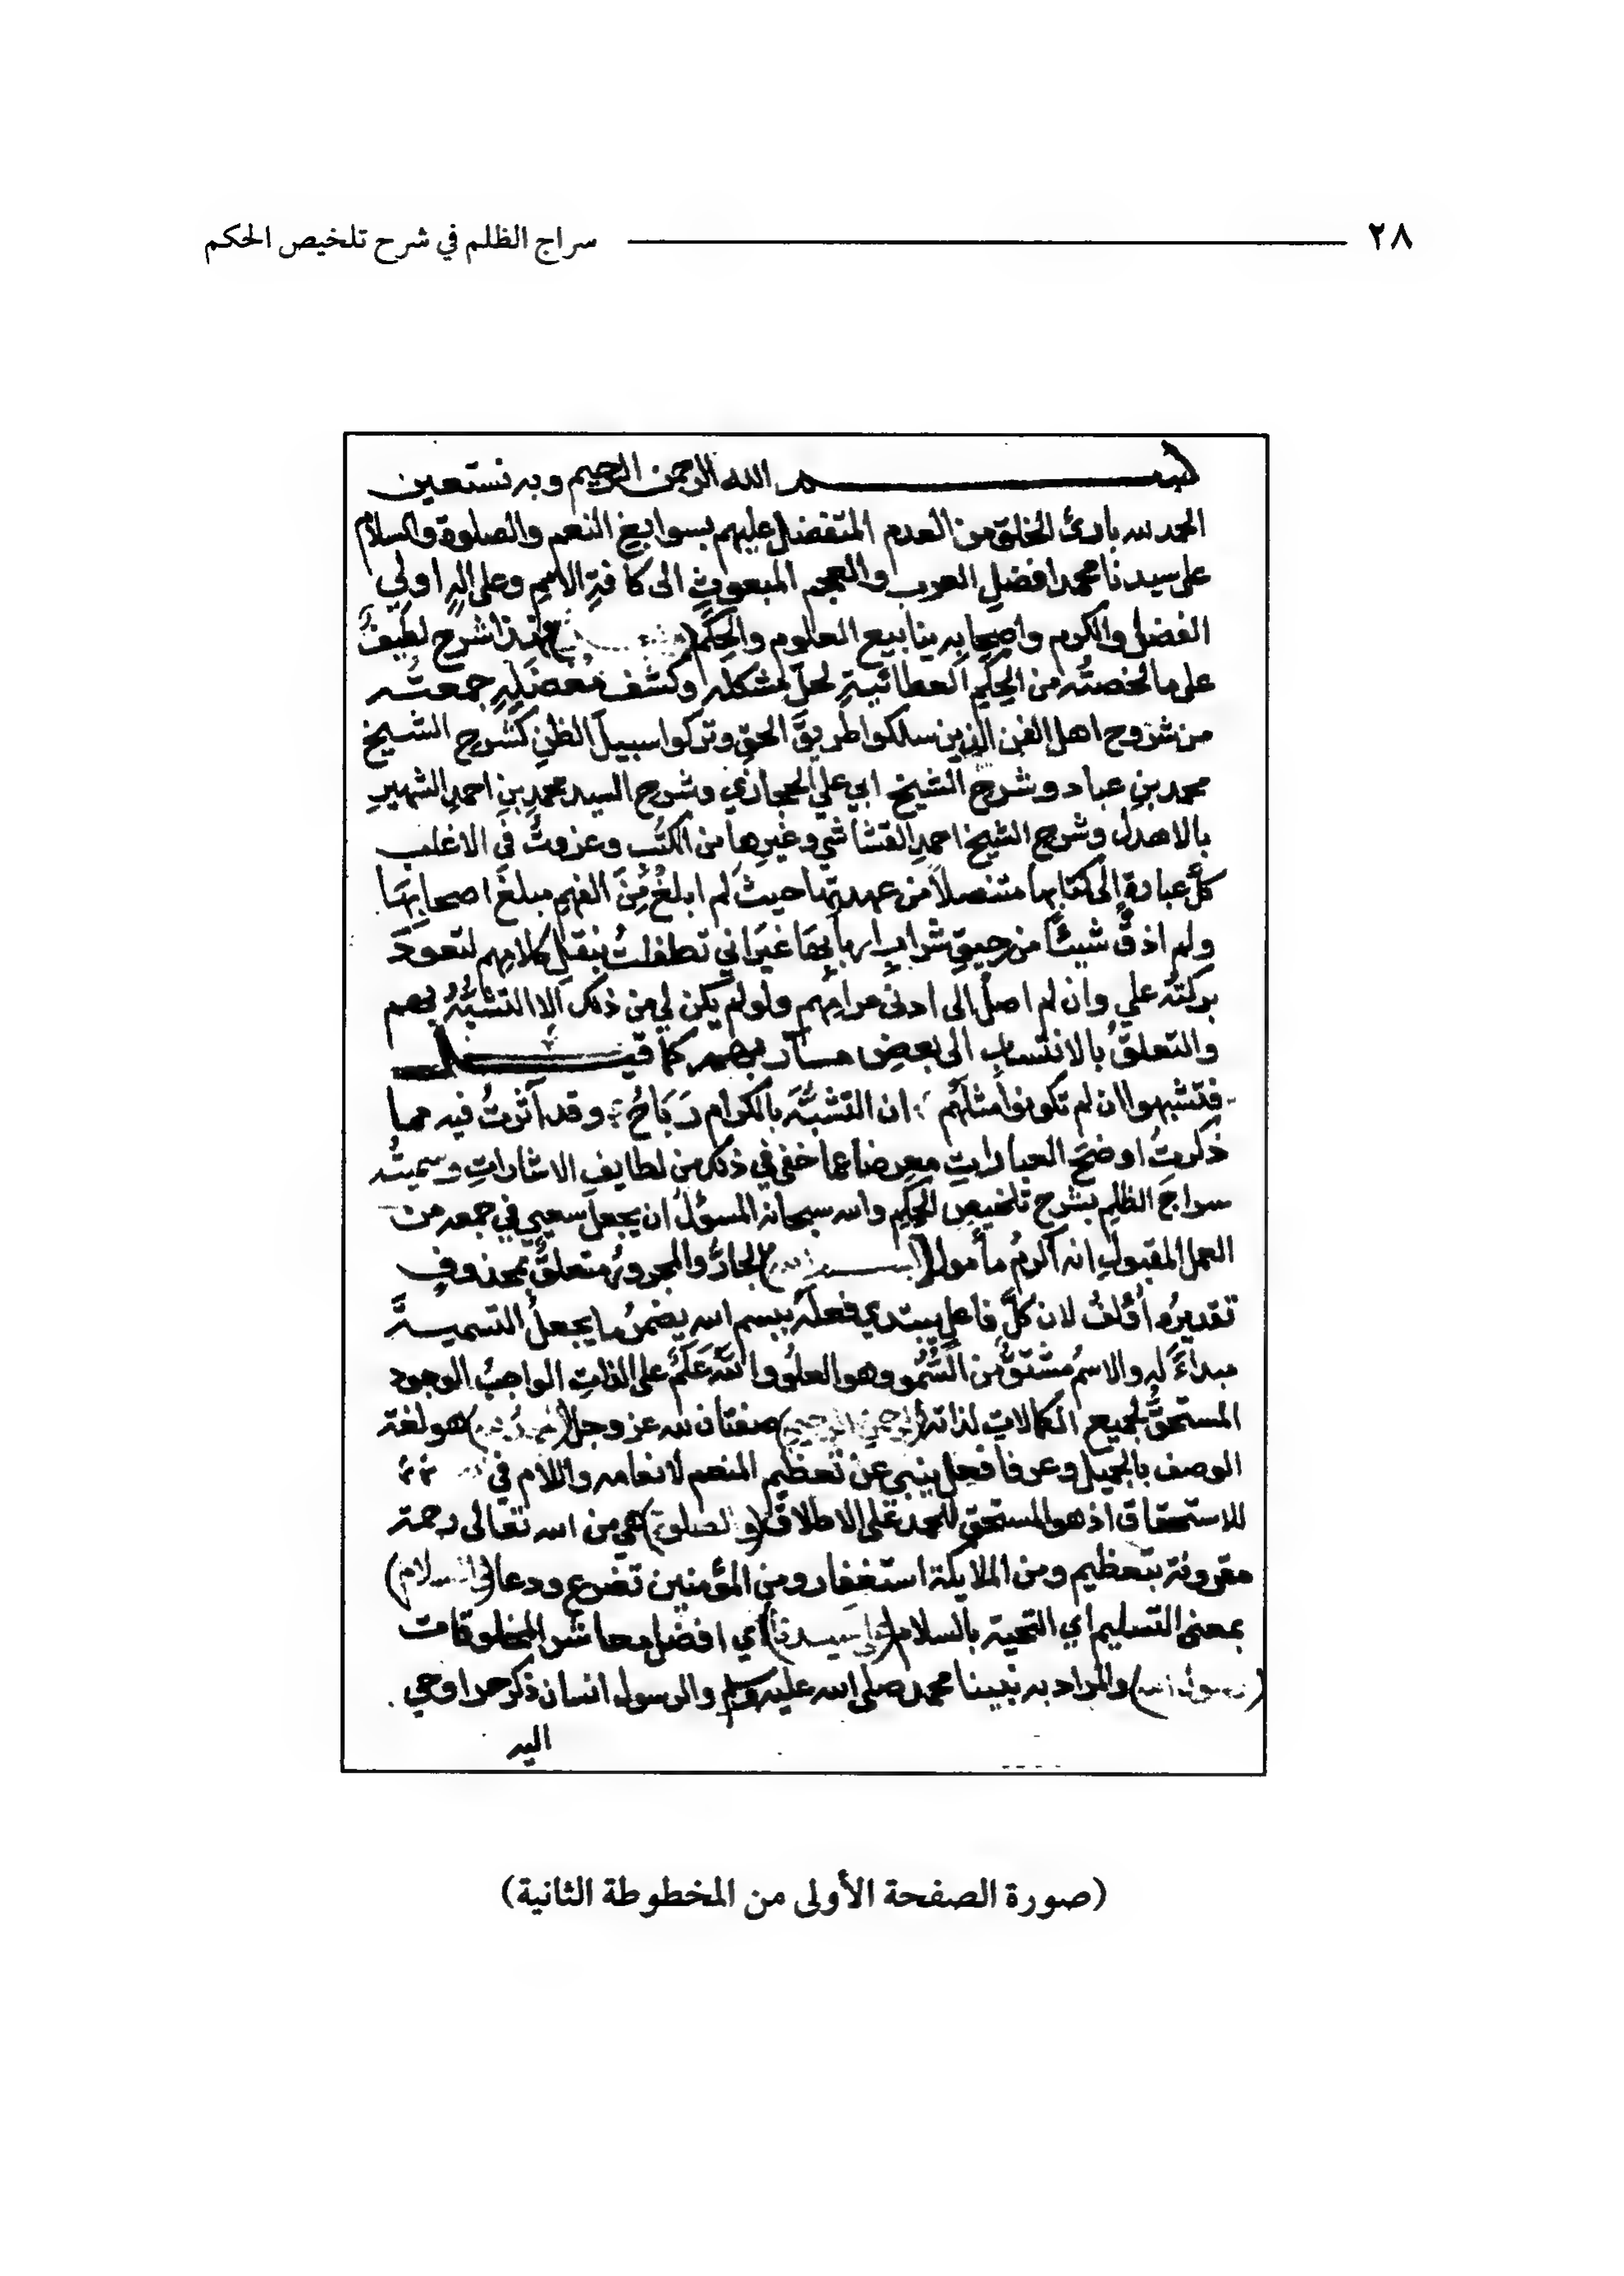 ٢٨ سراج الظلم في شرح تلخيص الحكم
بسم الله الرحمن الرحيم وبه نستعين
الحمد لله بارئ الخلق من العدم المتفضل عليهم بسوابغ النعم والصلوة والسلام
على سيدنا محمد افضل العرب والعجم المبعوث الى كافة الامم وعلى اله اولي
الفضل والكرم واصحابه ينابيع العلوم والحكم فهذا شرح لطيف
على ما لخصته من الحكم العطائية لحل مشكله وكشف معضله جمعته
من شروح اهل الفن الذين سلكوا طريق الحق وتركوا سبيل الظن كشرح الشيخ
محمد بن عباد وشرح الشيخ ابي علي الحجازي وشرح السيد محمد بن احمد الشهير
بالاهدل وشرح الشيخ احمد القشاشي وغيرها من الكتب وعزوت في الاغلب
كل عبارة الى كتابها متنصلاً من عهدتها حيث لم ابلغ من الفهم مبلغ اصحابها
ولم اذق شيئاً من رحيق شراب اربابها غير اني تطفلت بنقل كلامهم لتعود
بركته علي وان لم اصل الى ادنى مرامهم ولو لم يكن لي من ذلك الا التشبه بهم
والتعلق بالانتساب الى بعض مآربهم كما قيل
فتشبهوا ان لم تكونوا مثلهم ان التشبه بالكرام رباح وقد آثرت فيه مما
ذكرت اوضح العبارات معرضا عما خفي في ذلك من لطايف الاشارات وسميته
سراج الظلم بشرح تلخيص الحكم والله سبحانه المسؤل ان يجعل سعيي في جمعه من
العمل المقبول انه اكرم مأمول (بسم الله) الجار والمجرور متعلق بمحذوف
تقديره أؤلف لان كل فاعل يبتدي فعله ببسم الله يضمر ما يجعل التسمية
مبداءً له والاسم مشتق من السُّمُو وهو العلو والله عَلَم على الذات الواجب الوجود
المستحق لجميع الكمالات لذاته (الرحمن الرحيم) صفتان لله عز وجل (الحمد لله) هو لغة
الوصف بالجميل وعرفا فعل ينبي عن تعظيم المنعم لانعامه واللام في لله
للاستحقاق اذ هو المستحق للحمد على الاطلاق (والصلوة) هي من الله تعالى رحمة
مقرونة بتعظيم ومن الملايكة استغفار ومن المؤمنين تضرع ودعا (والسلام)
بمعنى التسليم اي التحية بالسلام (على سيدنا) اي افضل معاشر المخلوقات
(رسول الله) والمراد به نبينا محمد صلى الله عليه وسلم والرسول انسان ذكر حر اوحي
اليه
(صورة الصفحة الأولى من المخطوطة الثانية)